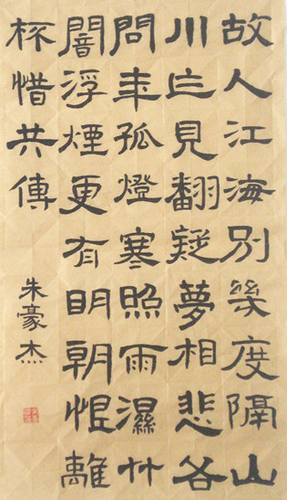 故人江海別幾度隔山
川乍見翻疑夢相悲各
問年孤燈寒照雨濕竹
闇浮煙更有明朝恨離
杯惜共傳
朱豪杰